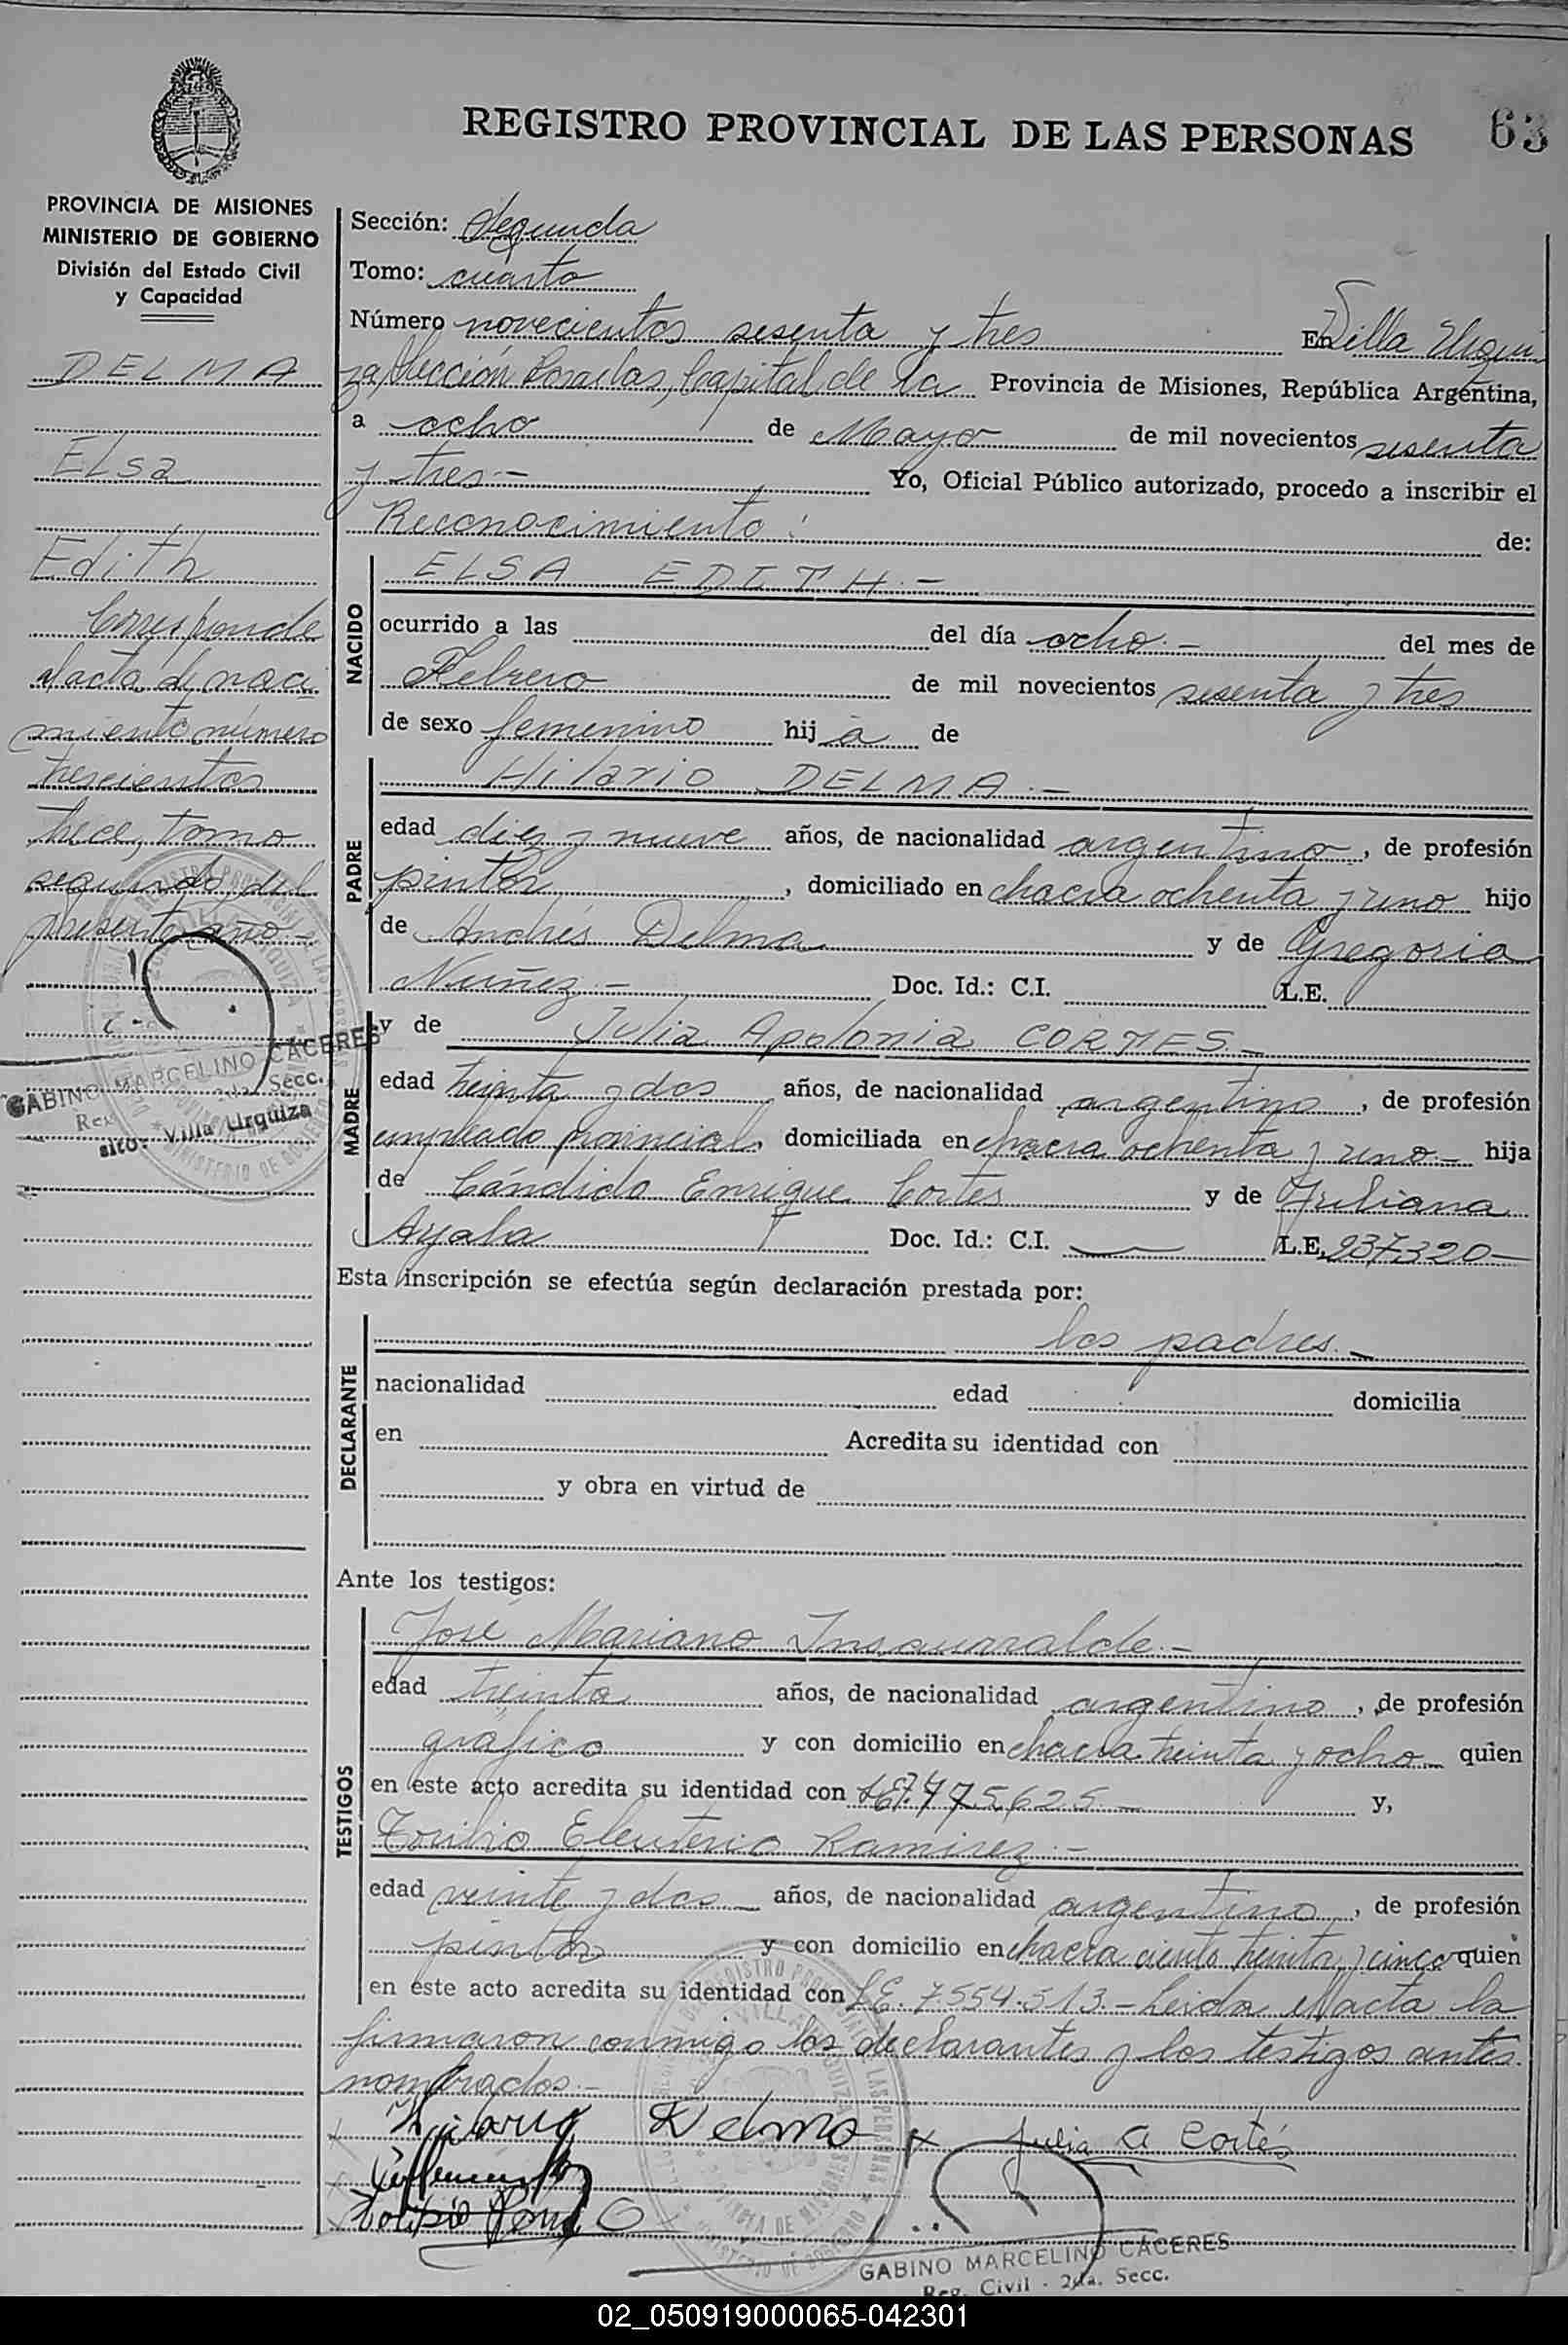 REGISTRO PROVINCIAL DE LAS PERSONAS 63
PROVINCIA DE MISIONES
MINISTERIO DE GOBIERNO
División del Estado Civil
y Capacidad
DELMA
Elsa
Edith
Corresponde
al acta de naci
miento número
trescientos
trece, tomo
segundo del
presente año.-
GABINO MARCELINO CACERES
Secc.
Villa Urquiza
Sección: Segunda
Tomo: cuarto
Número novecientos sesenta y tres En Villa Urqui
za, Sección Posadas, Capital de la Provincia de Misiones, República Argentina,
a ocho de Mayo de mil novecientos sesenta
y tres.- Yo, Oficial Público autorizado, procedo a inscribir el
Reconocimiento: de:
NACIDO
ELSA EDITH.-
ocurrido a las del día ocho.- del mes de
Febrero de mil novecientos sesenta y tres
de sexo femenino hij a de
PADRE
Hilario DELMA.-
edad diez y nueve años, de nacionalidad argentino, de profesión
pintor, domiciliado en chacra ochenta y uno hijo
de Andrés Delma y de Gregoria
Nuñez.- Doc. Id.: C.I. L.E.
MADRE
y de Julia Apolonia CORTES.-
edad treinta y dos años, de nacionalidad argentino, de profesión
empleado provincial, domiciliada en chacra ochenta y uno.- hija
de Cándido Enrique Cortes y de Juliana
Ayala Doc. Id.: C.I. — L.E. 237320—
Esta inscripción se efectúa según declaración prestada por:
DECLARANTE
los padres.-
nacionalidad edad domicilia
en Acredita su identidad con
y obra en virtud de
Ante los testigos:
TESTIGOS
José Mariano Insaurralde.-
edad treinta años, de nacionalidad argentino, de profesión
gráfico y con domicilio en chacra treinta y ocho quien
en este acto acredita su identidad con y,
Toribio Eleuterio Ramirez.-
edad veinte y dos años, de nacionalidad argentino, de profesión
pintor y con domicilio en chacra ciento treinta y cinco quien
en este acto acredita su identidad con L.E. 7554.513.- Leida el acta la
firmaron conmigo los declarantes y los testigos antes
nombrados.-
Hilario Delma x Julia A Cortés
GABINO MARCELINO CACERES
Reg. Civil - 2da. Secc.
02_050919000065-042301